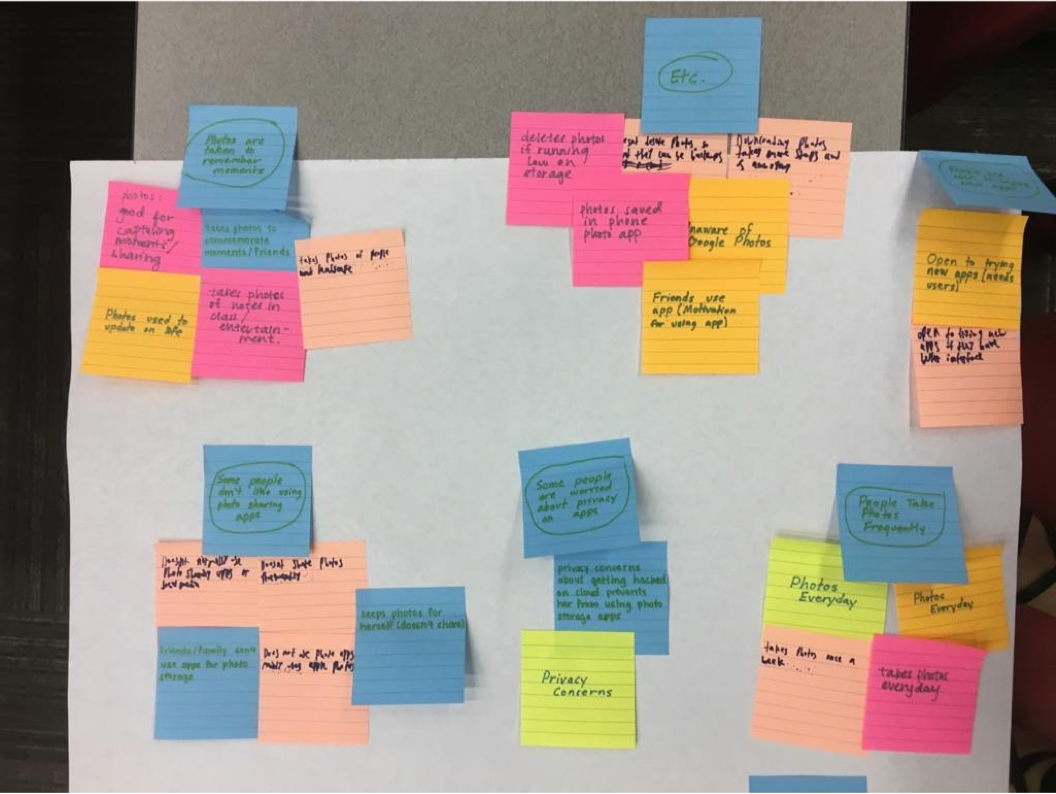 Etc.
Photos are
taken to
remember
moments
photos:
good for
capturing
moments/
sharing
takes photos to
commemorate
moments/friends
takes photos of people
and landscape
Photos used to
update on life
takes photos
of notes in
class/
entertain-
ment.
deletes photos
if running
low on
storage
delete photos so
that they can be backups
Downloading photos
takes more steps and
is annoying
photos saved
in phone
photo app
naware of
Google Photos
Friends use
app (Motivation
for using app)
People are
new apps
Open to trying
new apps (needs
users)
open to trying new
apps if they have
interface
Some people
don't like using
photo sharing
apps
Doesn't normally use
Photo sharing apps or
Doesn't share photos
frequently
Friends/Family don't
use apps for photo
storage
Does not use photo apps
apple photos
keeps photos for
herself (doesn't share)
Some people
are worried
about privacy
on apps
privacy concerns
about getting hacked
on cloud prevents
her from using photo
storage apps
Privacy
Concerns
People Take
Photos
Frequently
Photos
Everyday
Photos
Everyday
takes photos once a
week
takes photos
everyday